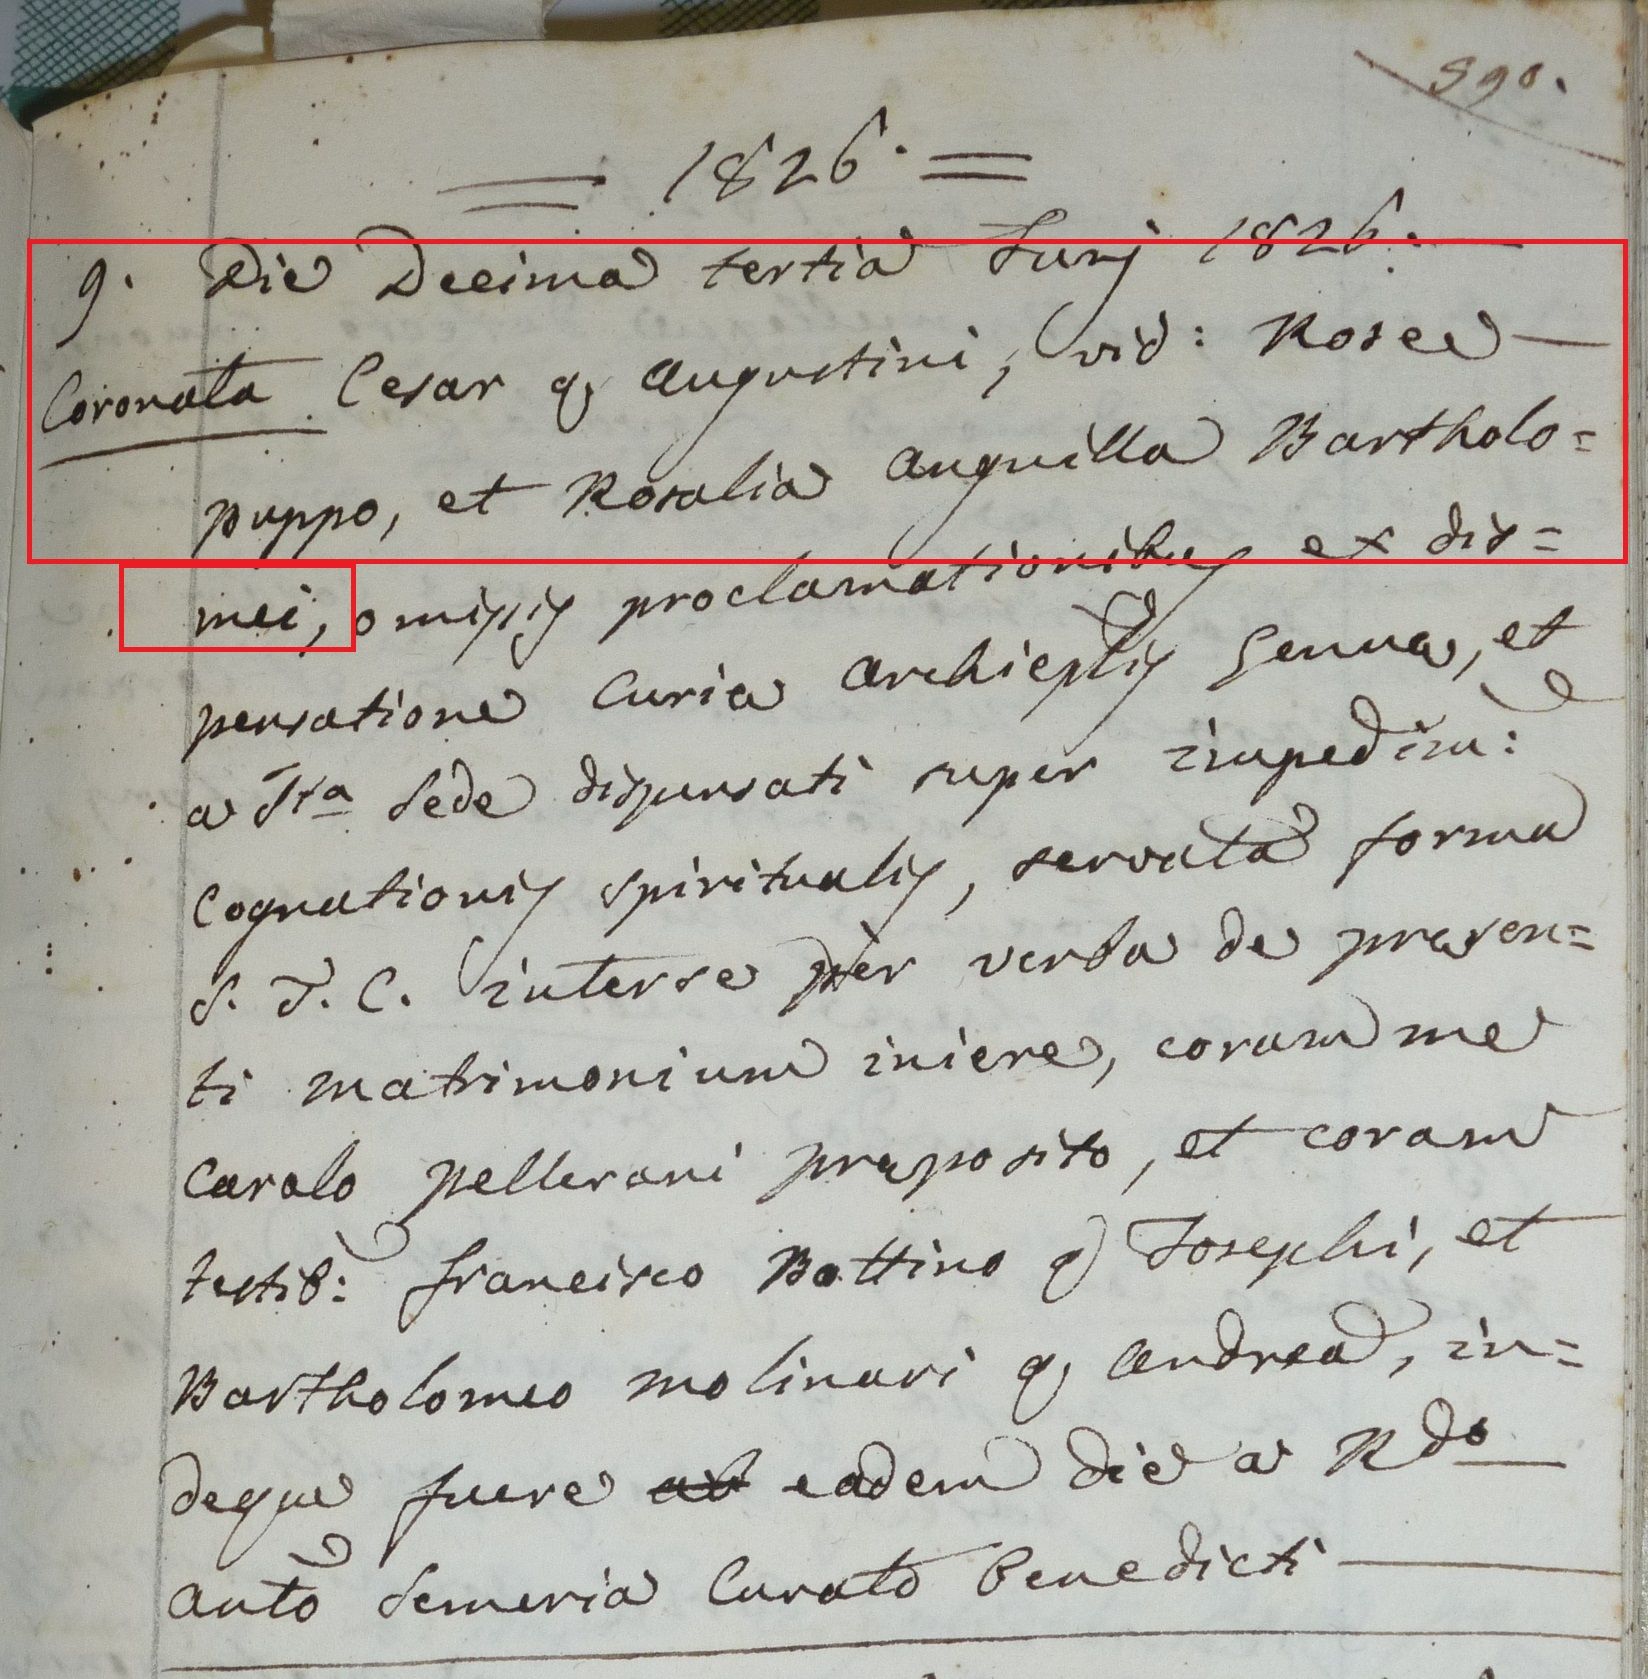 590.
= 1826. =
9. Die Decima tertia Junj 1826. —
Coronata Cesar q. Augustini, vid: Rosee —
puppo, et Rosalia Anguilla Bartholo=
mei, omissis proclamationibus ex dis=
pensatione Curia Archieplis Genua, et
a Sta Sede dispensati super impedim:
Cognationis spiritualis, servata forma
S. T. C. interse per verba de presen=
ti matrimonium iniere, coram me
Carolo pellerani præposito, et coram
testib: francisco Bottino q Josephi, et
Bartholomeo molinari q. Andrea, in=
deque fuere ab eadem die a Rdo
Anto Semeria Curato benedicti —